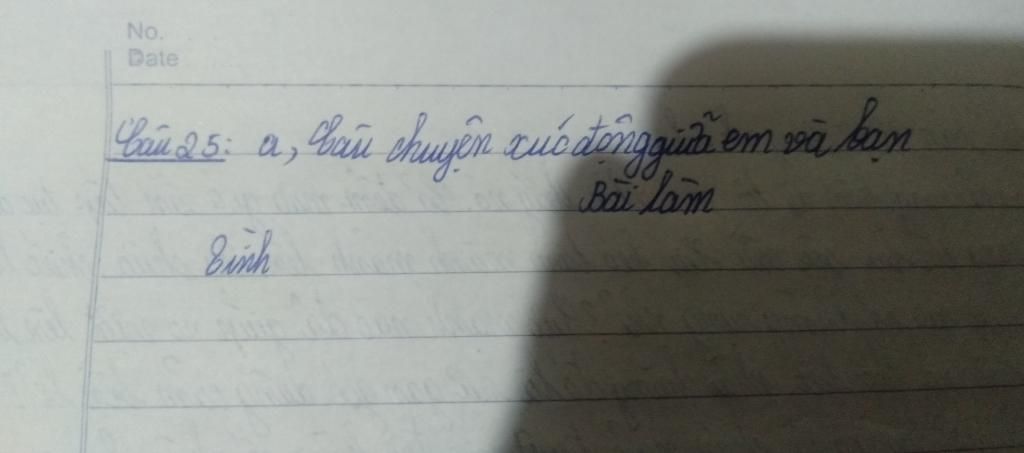 No.
Date
Câu 25: a, Câu chuyện xúc động giữa em và bạn
Bài làm
Tình